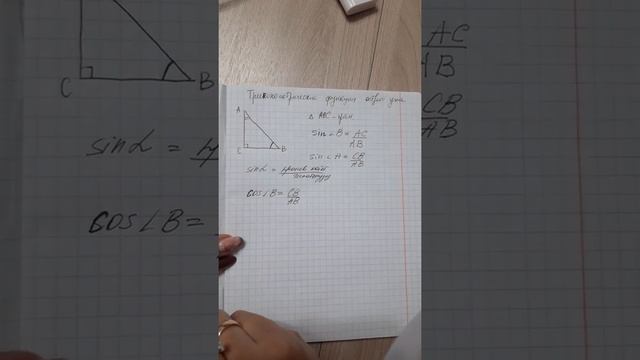 Тригонометрические функции острого угла
A
C
B
△ ABC - прям.
sin ∠B = AC/AB
sin ∠A = CB/AB
sin α = против. кат/гипотенуз
cos ∠B = CB/AB